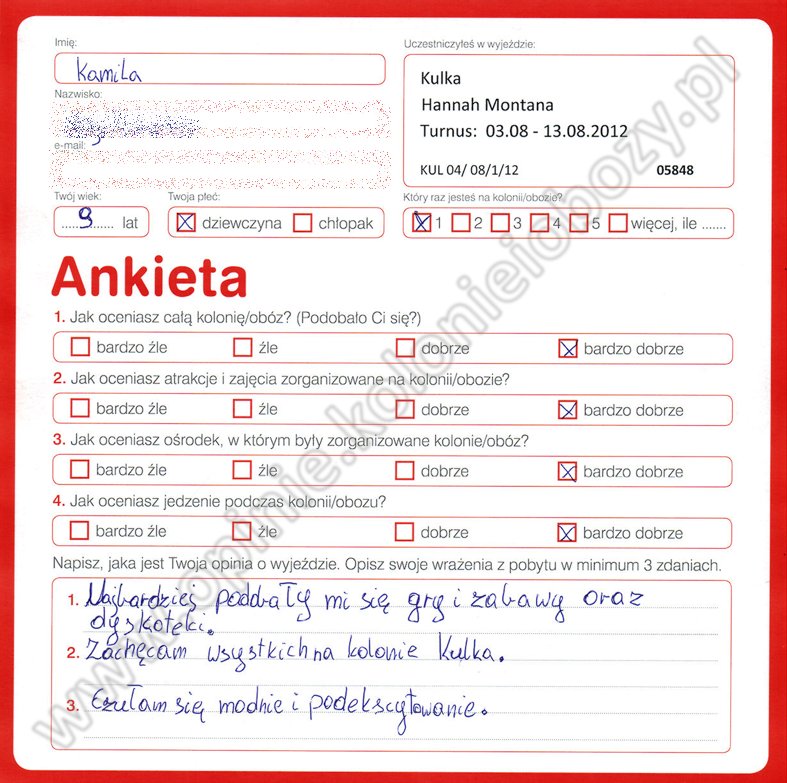 Imię:
Kamila
Nazwisko:
e-mail:
Twój wiek:
9 lat
Twoja płeć:
dziewczyna chłopak
Uczestniczyłeś w wyjeździe:
Kulka
Hannah Montana
Turnus: 03.08 - 13.08.2012
KUL 04/ 08/1/12 05848
Który raz jesteś na kolonii/obozie?
1 2 3 4 5 więcej, ile .......
Ankieta
1. Jak oceniasz całą kolonię/obóz? (Podobało Ci się?)
bardzo źle źle dobrze bardzo dobrze
2. Jak oceniasz atrakcje i zajęcia zorganizowane na kolonii/obozie?
bardzo źle źle dobrze bardzo dobrze
3. Jak oceniasz ośrodek, w którym były zorganizowane kolonie/obóz?
bardzo źle źle dobrze bardzo dobrze
4. Jak oceniasz jedzenie podczas kolonii/obozu?
bardzo źle źle dobrze bardzo dobrze
Napisz, jaka jest Twoja opinia o wyjeździe. Opisz swoje wrażenia z pobytu w minimum 3 zdaniach.
1. Najbardziej podobały mi się gry i zabawy oraz
dyskoteki.
2. Zachęcam wsystkich na kolonie Kulka.
3. Czułam się modnie i podekscytowanie.
www.opinie.kolonieiobozy.pl